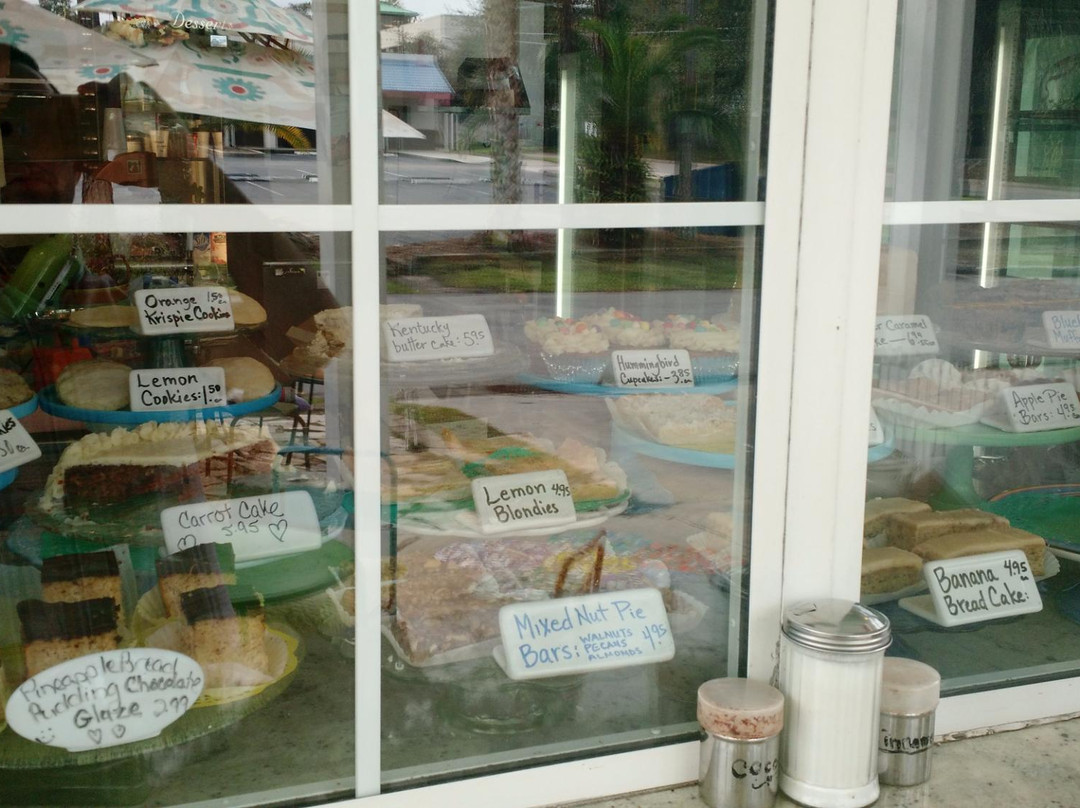 Desserts
Orange 1.50 ea
Krispie Cookies
Lemon
Cookies: 1.50
Kentucky
butter cake: 5.95
Hummingbird
Cupcakes: - 3.85
Caramel
Apple Pie
Bars: 4.95
Carrot Cake
5.95
Lemon 4.95
Blondies
Banana 4.95
Bread Cake:
Mixed Nut Pie
Bars: WALNUTS
PECANS 4.95
ALMONDS
Pineapple Bread
Pudding Chocolate
Glaze 2.99
Coco